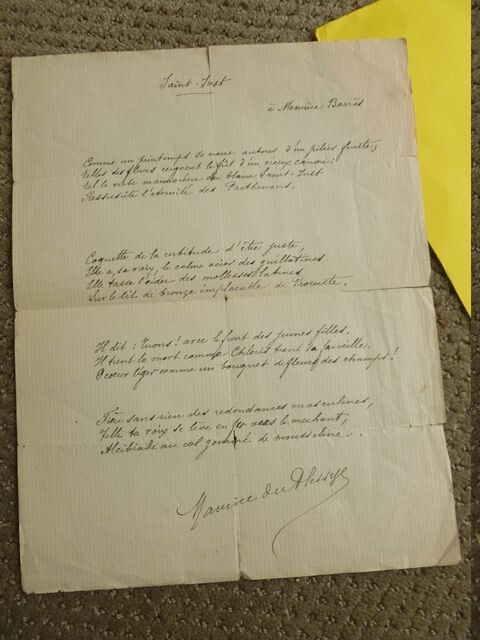 Saint-Just
à Maurice Barrès
Comme un printemps se noue autour d'un pilier fruste,
Telles des fleurs ceignent le fût d'un vieux canon:
Tel le verbe marmoréen du blanc Saint-Just
Ressuscite l'éternité des Parthénons.
Coquette de la certitude d'être juste,
Elle a, sa voix, le calme acier des guillotines.
Elle tasse l'idée des mollesses latines
Sur le lit de bronze implacable de Procuste.
Il dit: Tuons! avec le front des jeunes filles.
Il tient la mort comme Chloris tient la faucille.
O cœur léger comme un bouquet de fleurs des champs!
Fier sans rien des redondances masculines,
Telle ta voix se lève en fer vers le méchant,
Alcibiade au col gommé de mousseline.
Maurice du Plessys